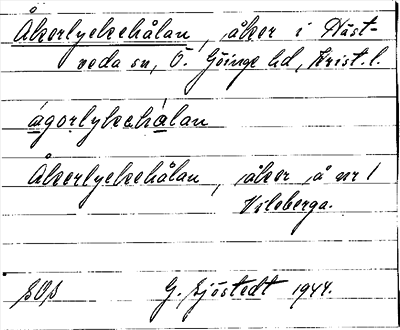 Åkerlyckehålan, åker i Häst-
veda sn, Ö. Göinge hd, Krist. l.
ágorlykehálan
Åkerlyckehålan, åker å nr 1
Vileberga.
G. Sjöstedt 1944.